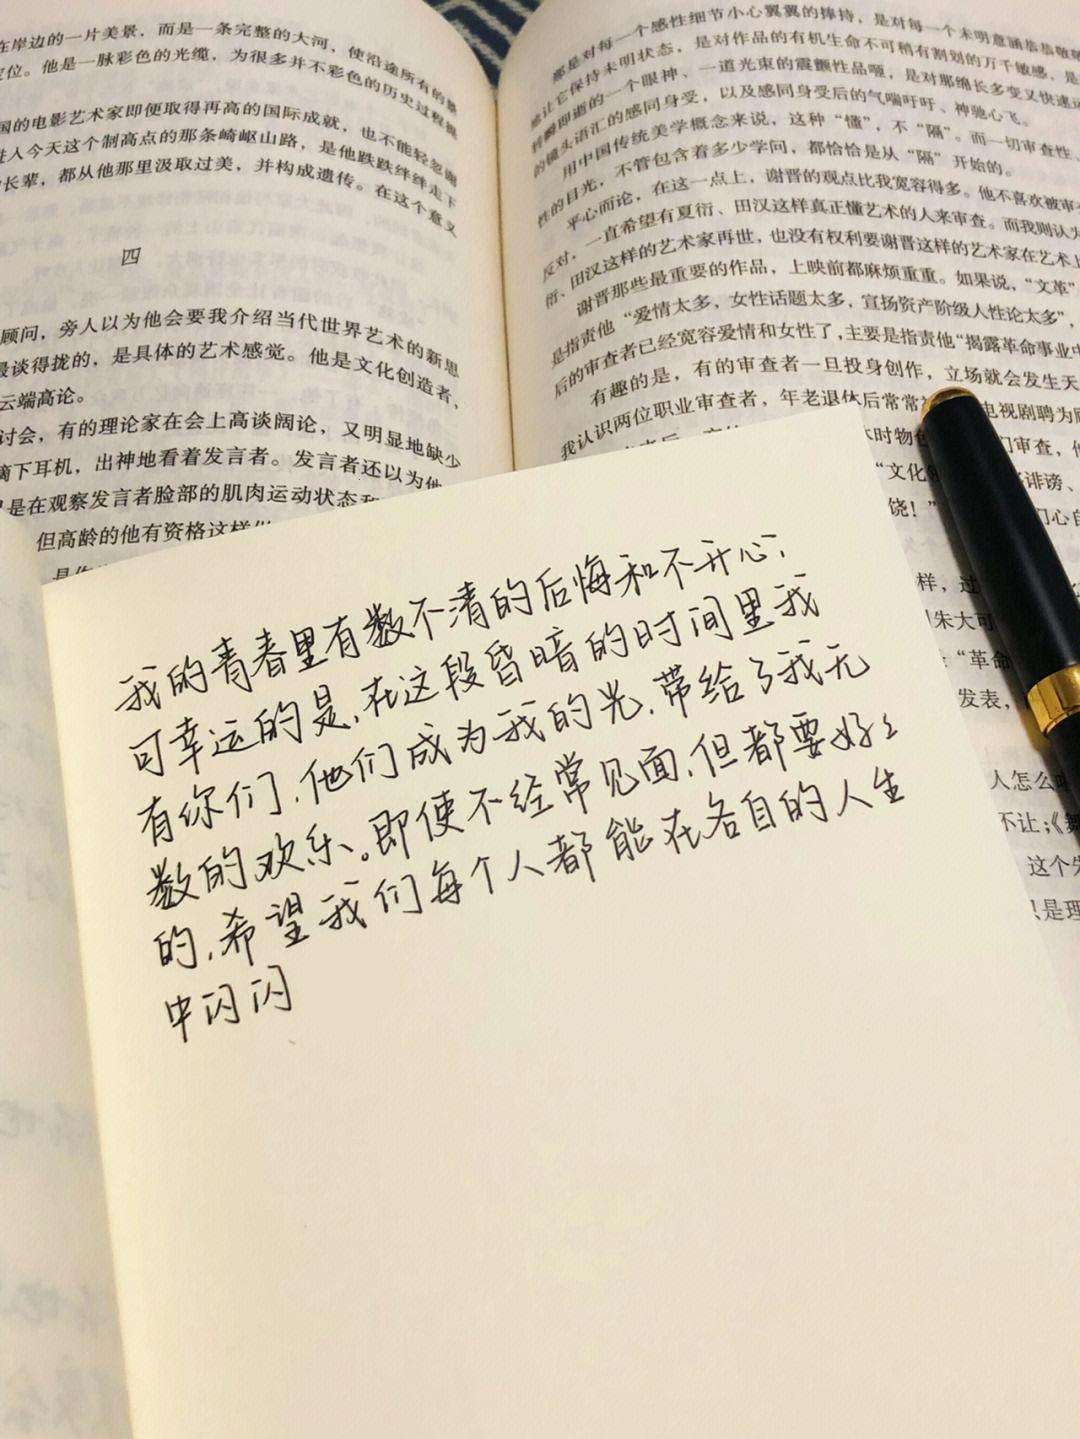 在岸边的一片美景，而是一条完整的大河，使沿途所有的景
定位。他是一脉彩色的光缆，为很多并不彩色的历史过程提
国的电影艺术家即便取得再高的国际成就，也不能轻忽谢
进入今天这个制高点的那条崎岖山路，是他跌跌绊绊走下
长辈，都从他那里汲取过美，并构成遗传。在这个意义
四
顾问，旁人以为他会要我介绍当代世界艺术的新思
最谈得拢的，是具体的艺术感觉。他是文化创造者，
云端高论。
讨会，有的理论家在会上高谈阔论，又明显地缺少
摘下耳机，出神地看着发言者。发言者还以为他
是在观察发言者脸部的肌肉运动状态和
但高龄的他有资格这样做
那是对每一个感性细节小心翼翼的捧持，是对每一个未明意涵恭恭敬敬
地让它保持未明状态，是对作品的有机生命不可稍有割划的万千敏感，是
转瞬即逝的一个眼神、一道光束的震颤性品咂，是对那绵长多变又快速运
的镜头语汇的感同身受，以及感同身受后的气喘吁吁、神驰心飞。
用中国传统美学概念来说，这种“懂”，不“隔”。而一切审查性、
性的目光，不管包含着多少学问，都恰恰是从“隔”开始的。
平心而论，在这一点上，谢晋的观点比我宽容得多。他不喜欢被审
反对，一直希望有夏衍、田汉这样真正懂艺术的人来审查。而我则认为
衍、田汉这样的艺术家再世，也没有权利要谢晋这样的艺术家在艺术上
谢晋那些最重要的作品，上映前都麻烦重重。如果说，“文革”
是指责他“爱情太多，女性话题太多，宣扬资产阶级人性论太多”，
后的审查者已经宽容爱情和女性了，主要是指责他“揭露革命事业中
有趣的是，有的审查者一旦投身创作，立场就会发生天
我认识两位职业审查者，年老退休后常常被电视剧聘为顾
时物色 们审查，他
“文化 诽谤、
饶！” 门心自
样，过
朱大可
“革命
发表，
人怎么
不让；《舞
这个失
只是理
我的青春里有数不清的后悔和不开心，
可幸运的是，在这段昏暗的时间里我
有你们，他们成为我的光，带给了我无
数的欢乐。即使不经常见面，但都要好々
的，希望我们每个人都能在各自的人生
中闪闪